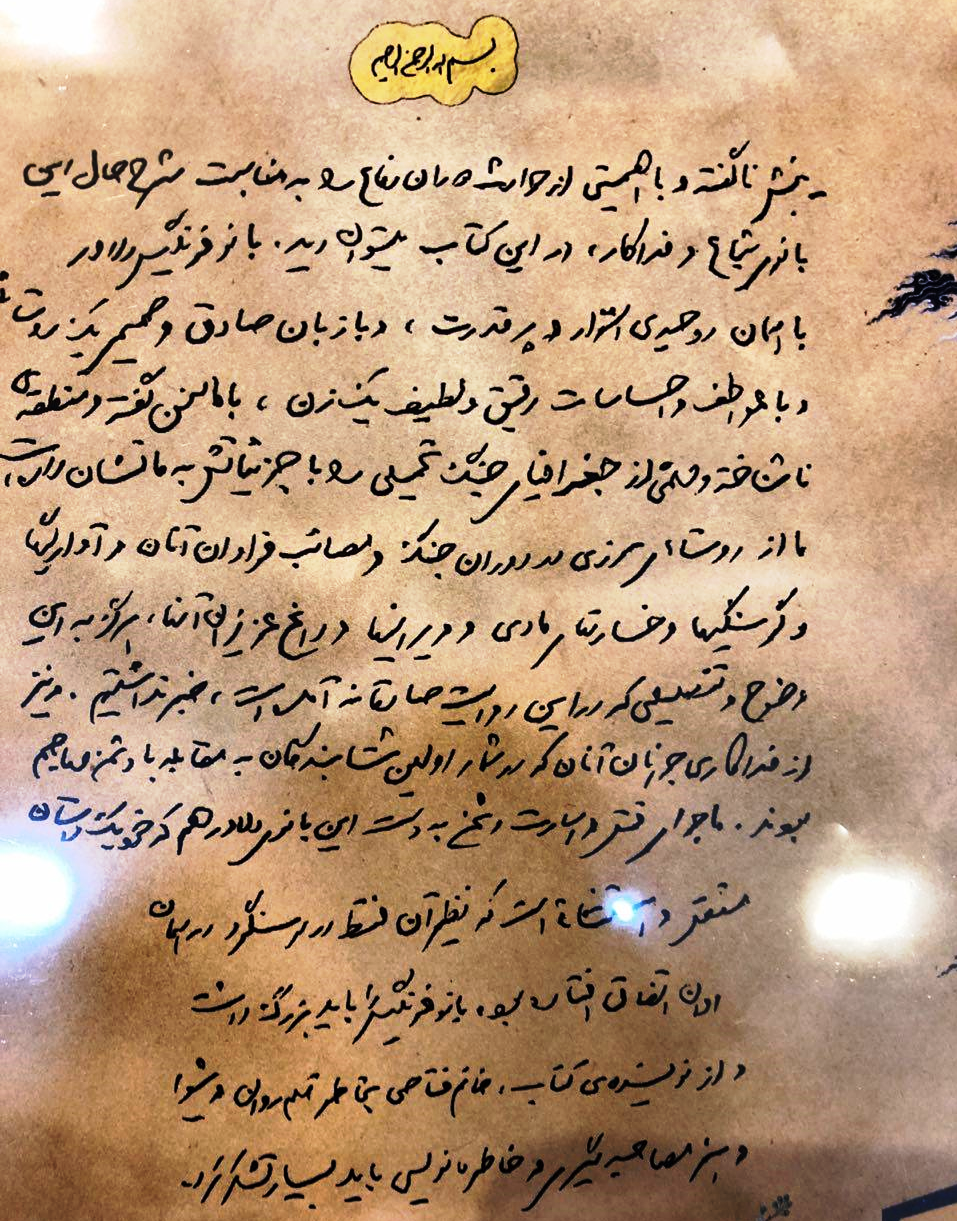 بسم الله الرحمن الرحیم
بخش ناگفته و با اهمیتی از حوادث دوران دفاع را به مناسبت شرح حال این
بانوی شجاع و فداکار، در این کتاب میتوان دید. بانو فرنگیس دلاور
با همان روحیه‌ی استوار و پر قدرت، و با زبان صادق و صمیمی یک روستائی
و با عواطف و احساسات رقیق و لطیف یک زن، با ما سخن گفته و منطقه‌ی
ناشناخته و مهمی از جغرافیای جنگ تحمیلی را با جزئیاتش به ما نشان داده است
ما از روستاهای مرزی در دوران جنگ و مصائب فراوان آنان و آوارگیها
و گرسنگیها و خسارتهای مادی و ویرانیها و داغ عزیزان آنها، هرگز به این
وضوح و تفصیلی که در این روایت صادقانه آمده است، خبر نداشتیم. و نیز
از فداکاری جوانان آنان که در شمار اولین شتابندگان به مقابله با دشمن مهاجم
بودند. ماجرای قتل و اسارت دشمن به دست این بانوی دلاور هم که خود یک داستان
مستقل و استثنائی است که نظیر آن فقط در سوسنگرد در همان
اوان اتفاق افتاده بود. بانو فرنگیس را باید بزرگ داشت
و از نویسنده‌ی کتاب، خانم فتاحی بخاطر قلم روان و شیوا
و هنر مصاحبه گیری و خاطره نویسی باید بسیار تشکر کرد.